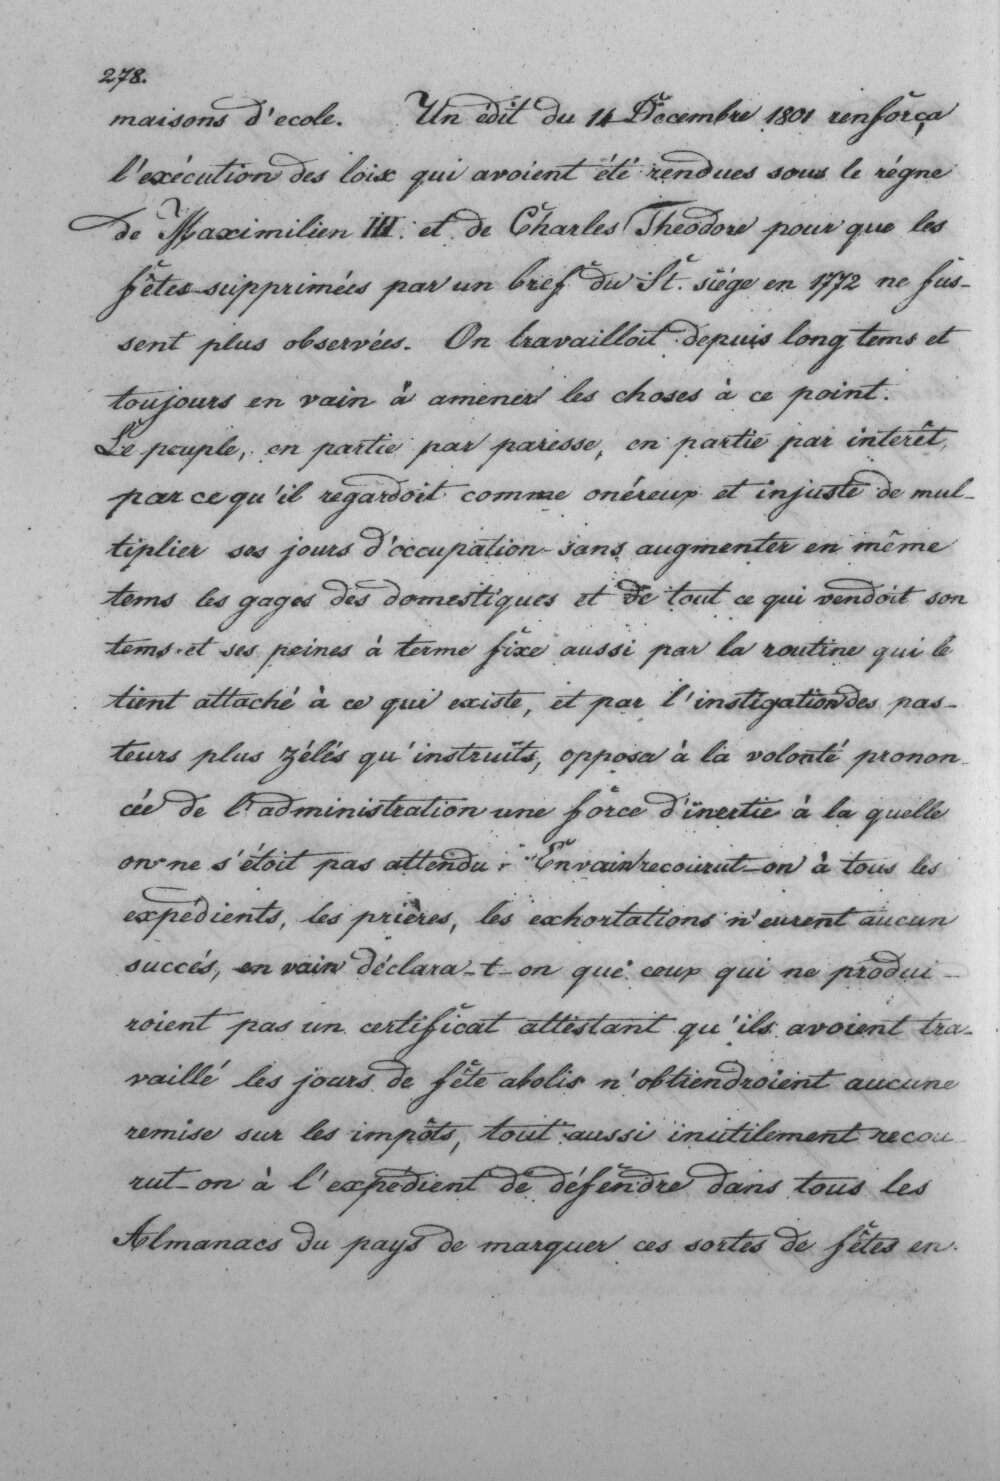 278.
maisons d'ecole. Un édit du 14 Decembre 1801 renforça
l'exécution des loix qui avoient été rendues sous le régne
de Maximilien III. et de Charles Theodore pour que les
fêtes supprimées par un bref du St. siége en 1772 ne fus-
sent plus observées. On travailloit depuis long tems et
toujours en vain à amener les choses à ce point.
Le peuple, en partie par paresse, en partie par interêt,
par ce qu'il regardoit comme onéreux et injuste de mul-
tiplier ses jours d'occupation sans augmenter en même
tems les gages des domestiques et de tout ce qui vendoit son
tems et ses peines à terme fixe aussi par la routine qui le
tient attaché à ce qui existe, et par l'instigation des pas-
teurs plus zélés qu'instruits, opposa à la volonté pronon-
cée de l'administration une force d'inertie à la quelle
on ne s'étoit pas attendu. En vain recourut-on à tous les
expédients, les prières, les exhortations n'eurent aucun
succés, en vain déclara-t-on que ceux qui ne produi-
roient pas un certificat attestant qu'ils avoient tra-
vaillé les jours de fête abolis n'obtiendroient aucune
remise sur les impôts, tout aussi inutilement recou-
rut-on à l'expédient de défendre dans tous les
Almanacs du pays de marquer ces sortes de fêtes en